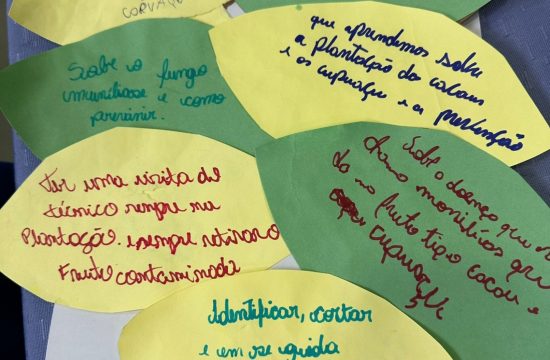 CORVAÇÃ
Sobre o fungo
imundiase e como
previnir.
que aprendemos sobre
a plantação do cacau
e os cupuaçu e a prevenção
Ter uma visita de
técnico sempre na
Plantação. e sempre retirar o
Fruto contaminada
Sobe o doença que
chamo monilíos que
da no fruto tipo cacau e
cupuaçu
Identificar, cortar
e em se guida